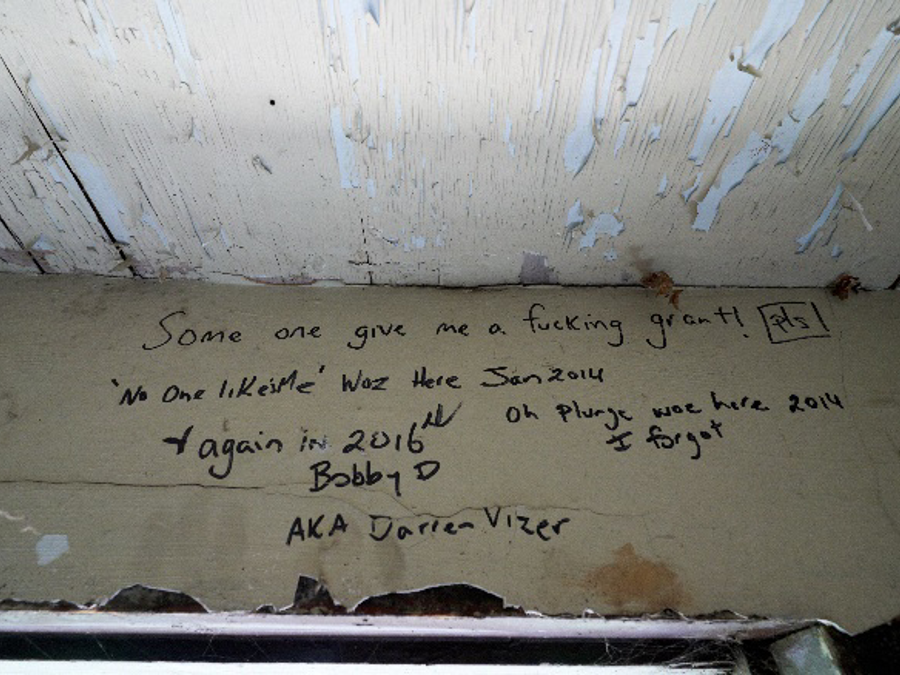 Some one give me a fucking grant! pls!
'No One likesMe' Woz Here Jan 2014
Oh Plunge woz here 2014
I forgot
+ again in 2016
Bobby D
AKA Darren Vizer